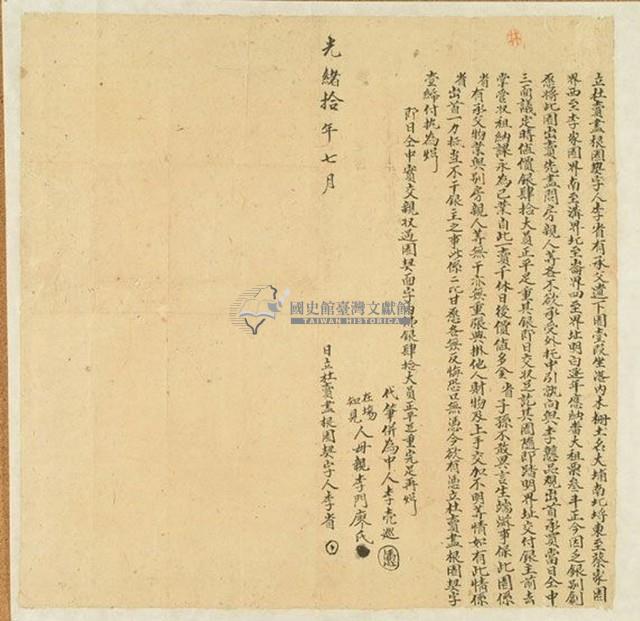 立杜賣盡根園契字人李省有承父遺下園壹段坐落內木柵土名大埔南北埒東至蔡家園
界西至李家園界南至溝界北至崙界四至界址明白逐年應納番大租粟叁斗正今因乏銀別創
愿將此園出賣先盡問房親人等各不欲承受外托中引就向與李戇品觀出首承買當日仝中
三面議定時值價銀肆拾大員正平足重其銀即日交收足訖其園隨即踏明界址交付銀主前去
掌管收租納課永為己業自此一賣千休日後價值多金省子孫不敢異言生端滋事保此園係
省有承父物業與別房親人等無干亦無重張典掛他人財物及上手交加不明等情如有此情係
省出首一力抵當不干銀主之事此係二比甘愿各無反悔恐口無憑今欲有憑立杜賣盡根園契字
壹紙付执為炤
即日仝中實交親收過園契面字內佛銀肆拾大員正平足重完足再炤
代筆併為中人李克巡
在場知見人母親李門廖氏
日立杜賣盡根園契字人李省
光緒拾年七月
國史館臺灣文獻館
TAIWAN HISTORICA